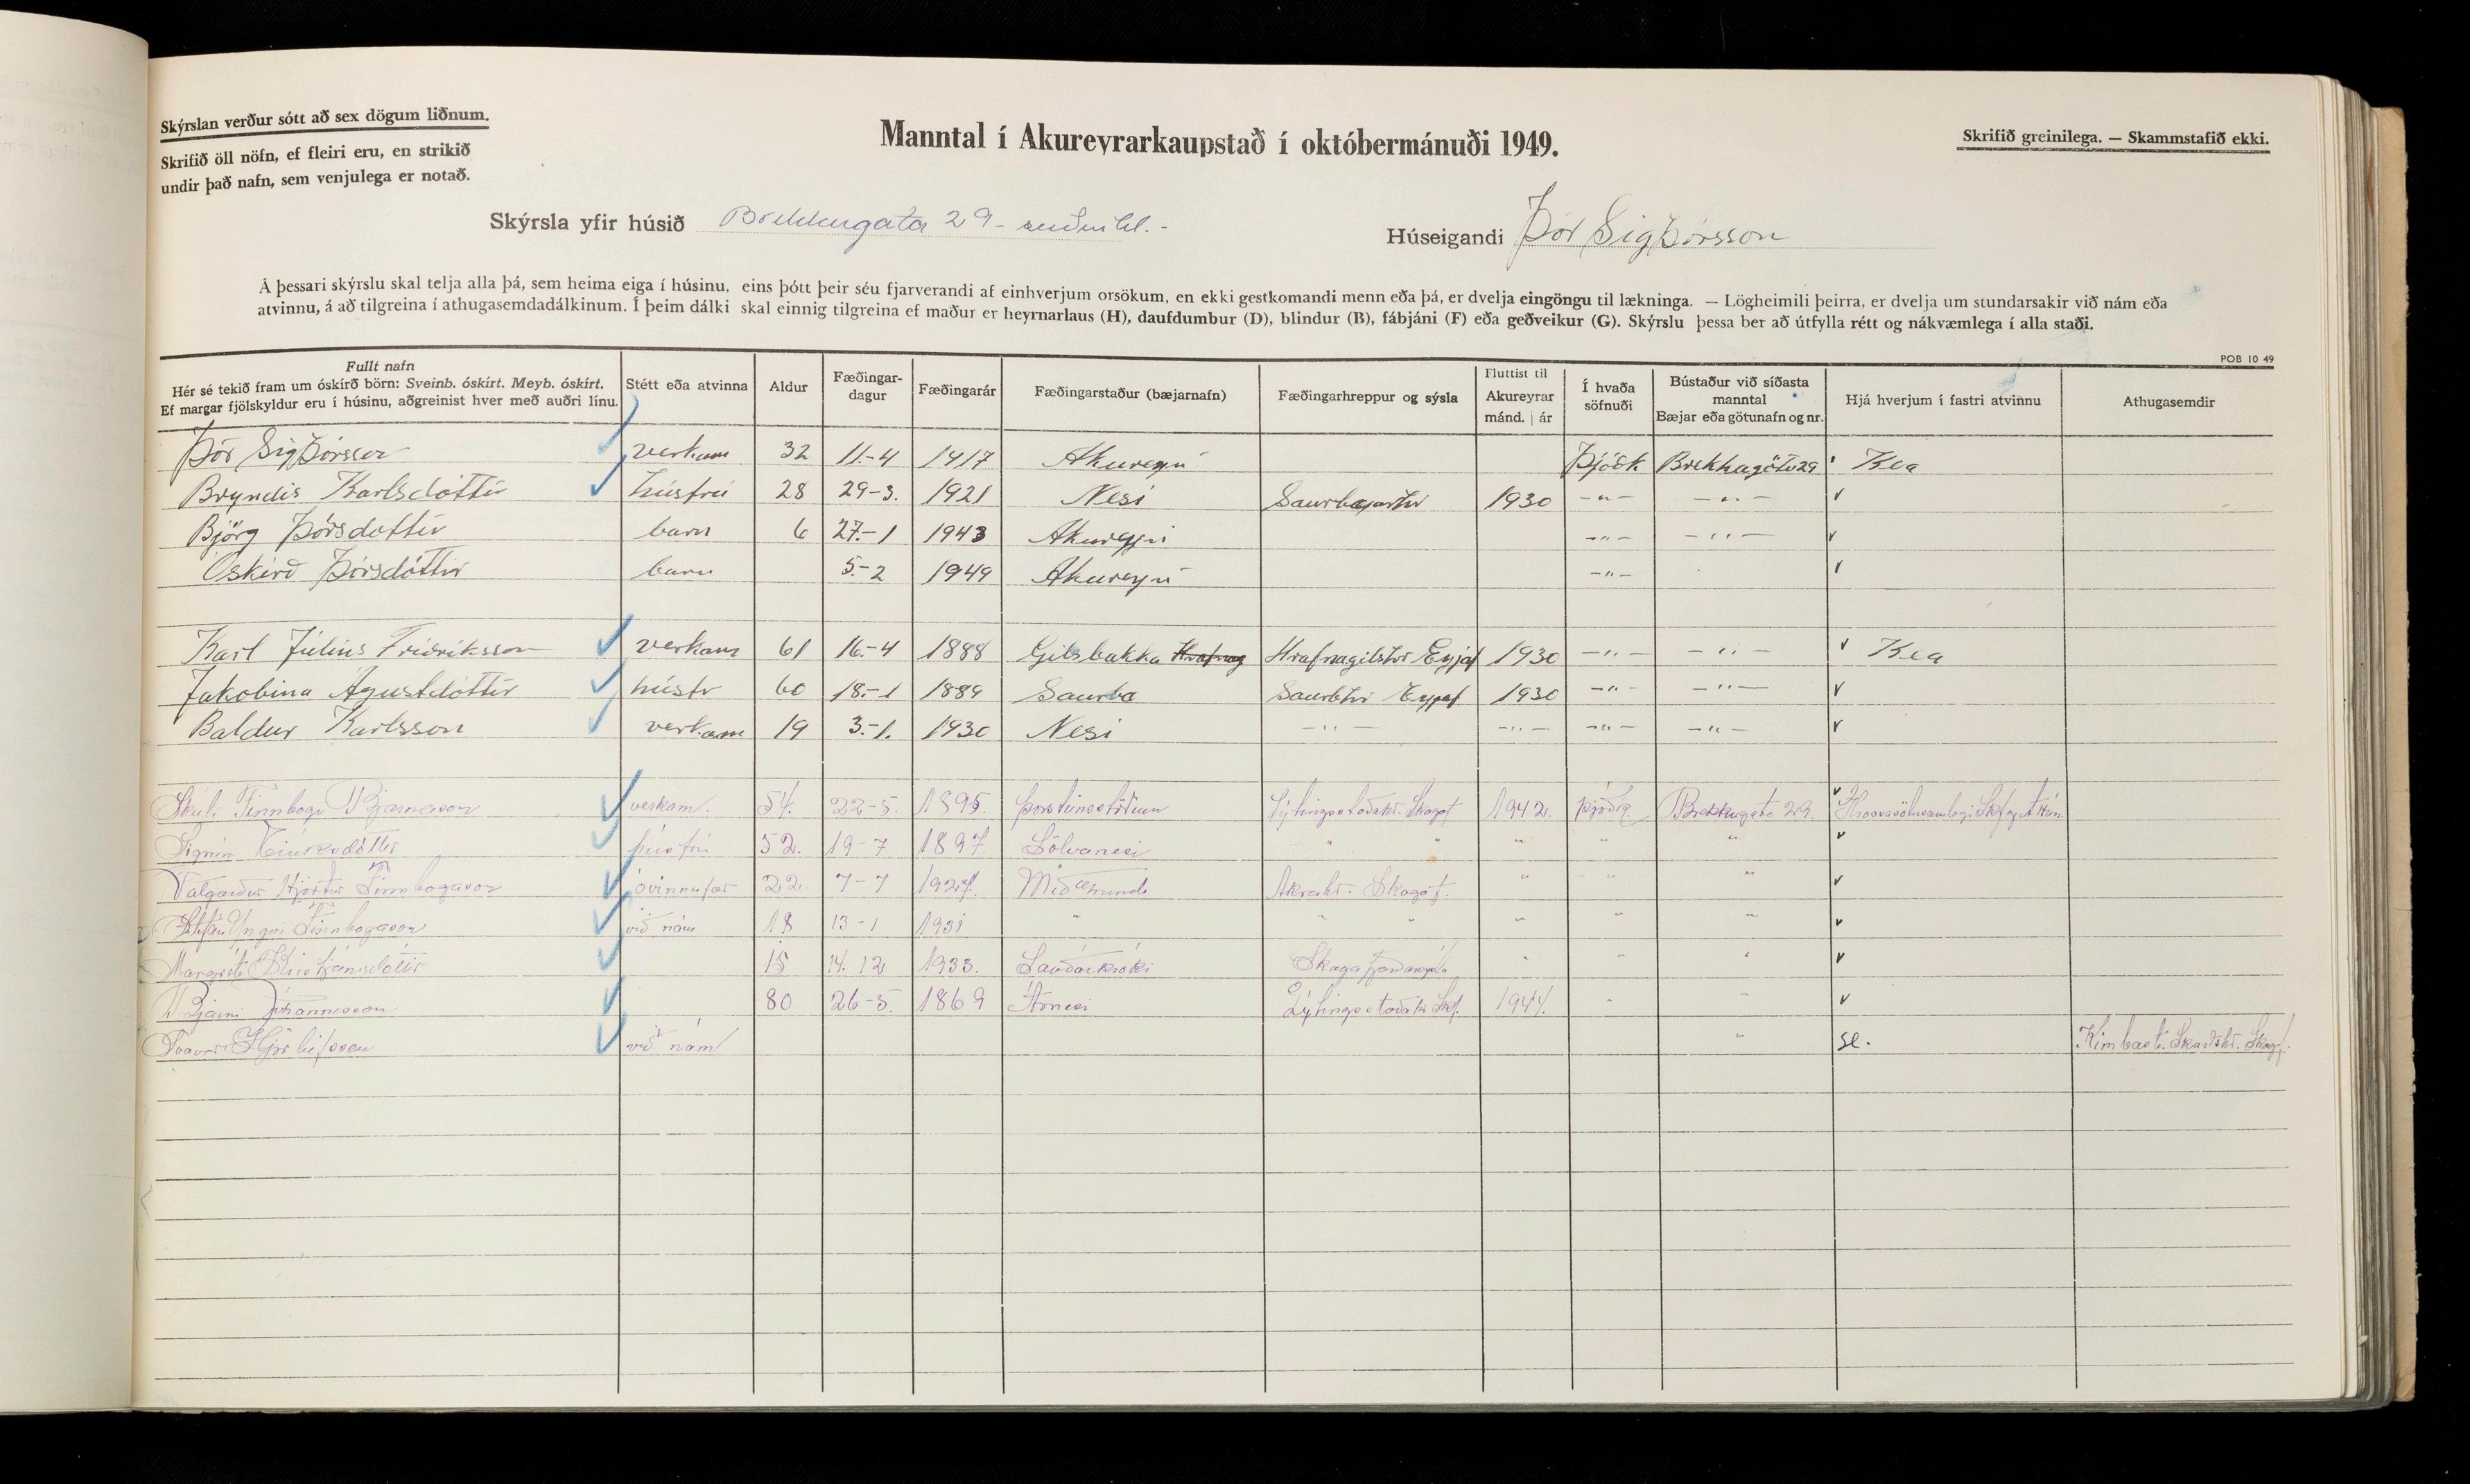 Skýrslan verður sótt að sex dögum liðnum.
Skrifið öll nöfn, ef fleiri eru, en strikið
undir það nafn, sem venjulega er notað.
Manntal í Akureyrarkaupstað í októbermánuði 1949.
Skrifið greinilega. — Skammstafið ekki.
Skýrsla yfir húsið Brekkugata 29 -
Húseigandi Þór Sigþórsson
Á þessari skýrslu skal telja alla þá, sem heima eiga í húsinu, eins þótt þeir séu fjarverandi af einhverjum orsökum, en ekki gestkomandi menn eða þá, er dvelja eingöngu til lækninga. — Lögheimili þeirra, er dvelja um stundarsakir við nám eða
atvinnu, á að tilgreina í athugasemdadálkinum. Í þeim dálki skal einnig tilgreina ef maður er heyrnarlaus (H), daufdumbur (D), blindur (B), fábjáni (F) eða geðveikur (G). Skýrslu þessa ber að útfylla rétt og nákvæmlega í alla staði.
POB 10 49
Fullt nafn
Hér sé tekið fram um óskírð börn: Sveinb. óskírt. Meyb. óskírt.
Ef margar fjölskyldur eru í húsinu, aðgreinist hver með auðri línu.
Stétt eða atvinna
Aldur
Fæðingar-
dagur
Fæðingarár
Fæðingarstaður (bæjarnafn)
Fæðingarhreppur og sýsla
Fluttist til
Akureyrar
mánd. | ár
Í hvaða
söfnuði
Bústaður við síðasta
manntal
Bæjar eða götunafn og nr.
Hjá hverjum í fastri atvinnu
Athugasemdir
Þór Sigþórsson verkam 32 11.-4 1917 Akureyri Þjóðk Brekkugötu 29 Kea
Bryndís Karlsdóttir húsfrú 28 29-3. 1921 Nesi Saurbæjarhr 1930 -"- -"-
Björg Þórsdóttir barn 6 27.-1 1943 Akureyri -"- -"-
Óskírð Þórsdóttir barn 5.-2 1949 Akureyri -"-
Karl Júlíus Friðriksson verkam 61 16.-4 1888 Gilsbakka Hrafnag Hrafnagilshr Eyjaf 1930 -"- -"- Kea
Jakobína Ágústdóttir húsfr 60 18.-1 1889 Saurbæ Saurbhr Eyjaf 1930 -"- -"-
Baldur Karlsson verkam 19 3.-1. 1930 Nesi -"- -"- -"- -"-
Skúli Finnbogi Bjarnason verkam. 54. 22-5. 1895. Þorsteinsstöðum Lýtingsstaðahr. Skagaf 1942. þjóðk. Brekkugata 29.
Sigrún Eiríksdóttir húsfrú 52. 19-7 1897. Sölvanesi " " " " "
Valgarður Hjörtur Finnbogason óvinnufær 22. 7-7 1927. Miðgrund Akrahr. Skagaf. " " "
Stefán Yngvi Finnbogason við nám 18 13-1 1931 " " " " " "
Margrét Kristjánsdóttir 15 14. 12 1933. Sauðárkróki Skagafjarðarsýsla " " "
Bjarni Jóhannesson 80 26-5. 1869 Árnesi Lýtingsstaðahr Skf. 1944. " "
Svavar Hjörleifsson við nám " se. Kimbast. Skarðshr. Skagf.